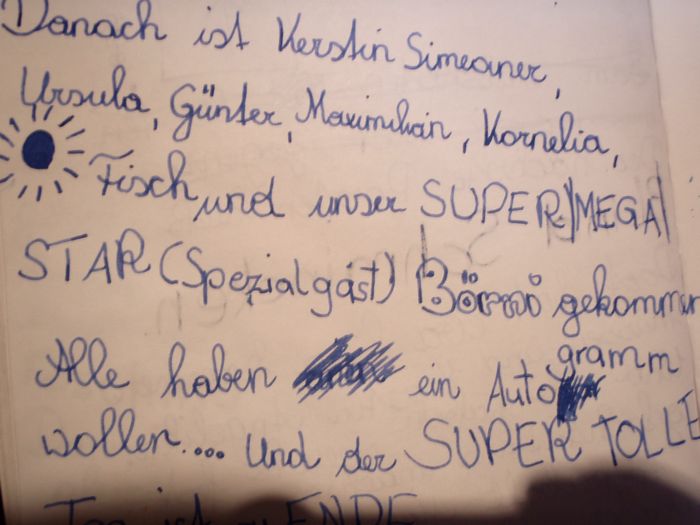 Danach ist Kerstin Simeaner,
Ursula, Günter, Maximilian, Kornelia,
Fisch und unser SUPER MEGA
STAR (Spezialgast) gekommen
Alle haben ein Autogramm
wollen... Und der SUPER TOLLE
Tag ist zu ENDE